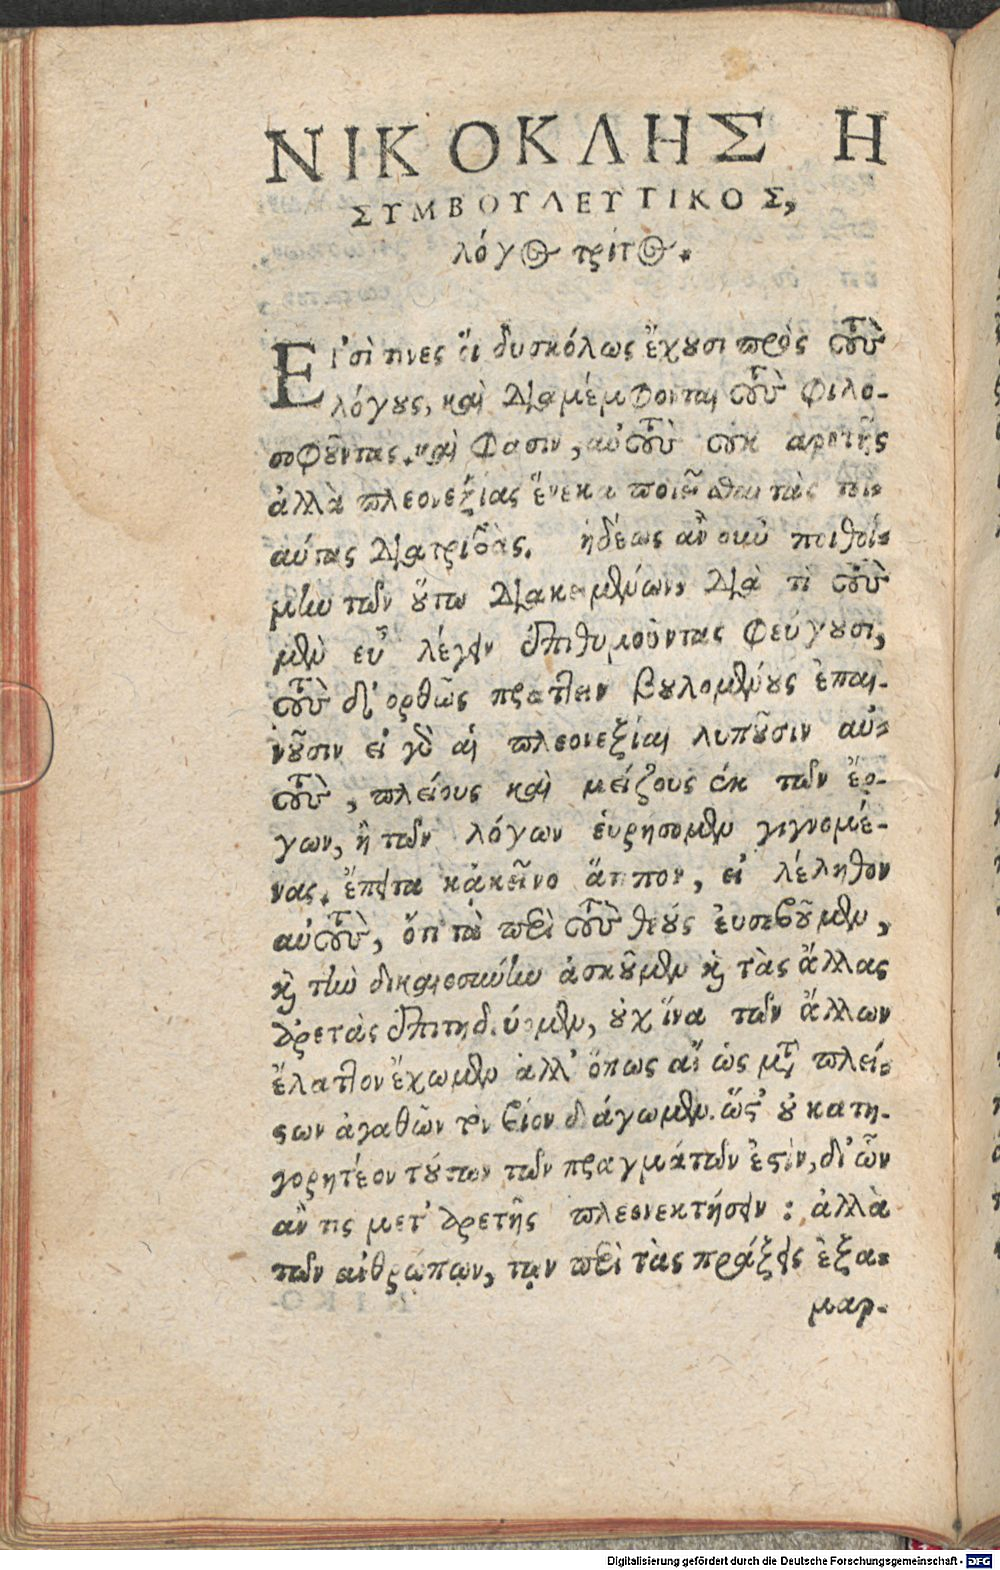 ΝΙΚΟΚΛΗΣ Η
ΣΥΜΒΟΥΛΕΥΤΙΚΟΣ,
λόγος τρίτος.
Εἰσί τινες ὅι δυσκόλως ἔχουσι πρὸς τοὺς
λόγους, καὶ διαμέμφονται τοὺς φιλο-
σοφοῦντας. καὶ φασιν, αὐτοὺς οὐκ ἀρετῆς
ἀλλὰ πλεονεξίας ἕνεκα ποιεῖσθαι τὰς τοι-
αύτας διατριβὰς. ἡδέως ἂν οὖν πυθοί-
μην τῶν οὕτω διακειμένων, διὰ τί τοὺς
μὲν εὖ λέγειν ἐπιθυμοῦντας φεύγουσι,
τοὺς δ' ὀρθῶς πράττειν βουλομένους ἐπαι-
νοῦσιν εἰ γὰρ αἱ πλεονεξίαι λυποῦσιν αὐ-
τοὺς, πλείους καὶ μείζους ἐκ τῶν ἔρ-
γων, ἢ τῶν λόγων ἑυρήσομεν γιγνομέ-
νας. ἔπειτα κἀκεῖνο ἄτοπον, εἰ λέληθεν
αὐτοὺς, ὅτι τὰ περὶ τοὺς θεοὺς ἐυσεβοῦμεν,
καὶ τὴν δικαιοσύνην ἀσκοῦμεν καὶ τὰς ἄλλας
ἀρετὰς ἐπιτηδεύομεν, οὐχ ἵνα τῶν ἄλλων
ἔλαττον ἔχωμεν ἀλλ' ὅπως ἂν ὡς μετὰ πλεί-
στων ἀγαθῶν τὸν βίον διάγωμεν. ὥστ' οὐ κατη-
γορητέον τούτων τῶν πραγμάτων ἐστὶν, δι' ὧν
ἄν τις μετ' ἀρετῆς πλεονεκτήσειεν : ἀλλὰ
τῶν ἀνθρώπων, τῶν περὶ τὰς πράξεις ἐξα-
μαρ-
Digitalisierung gefördert durch die Deutsche Forschungsgemeinschaft - DFG